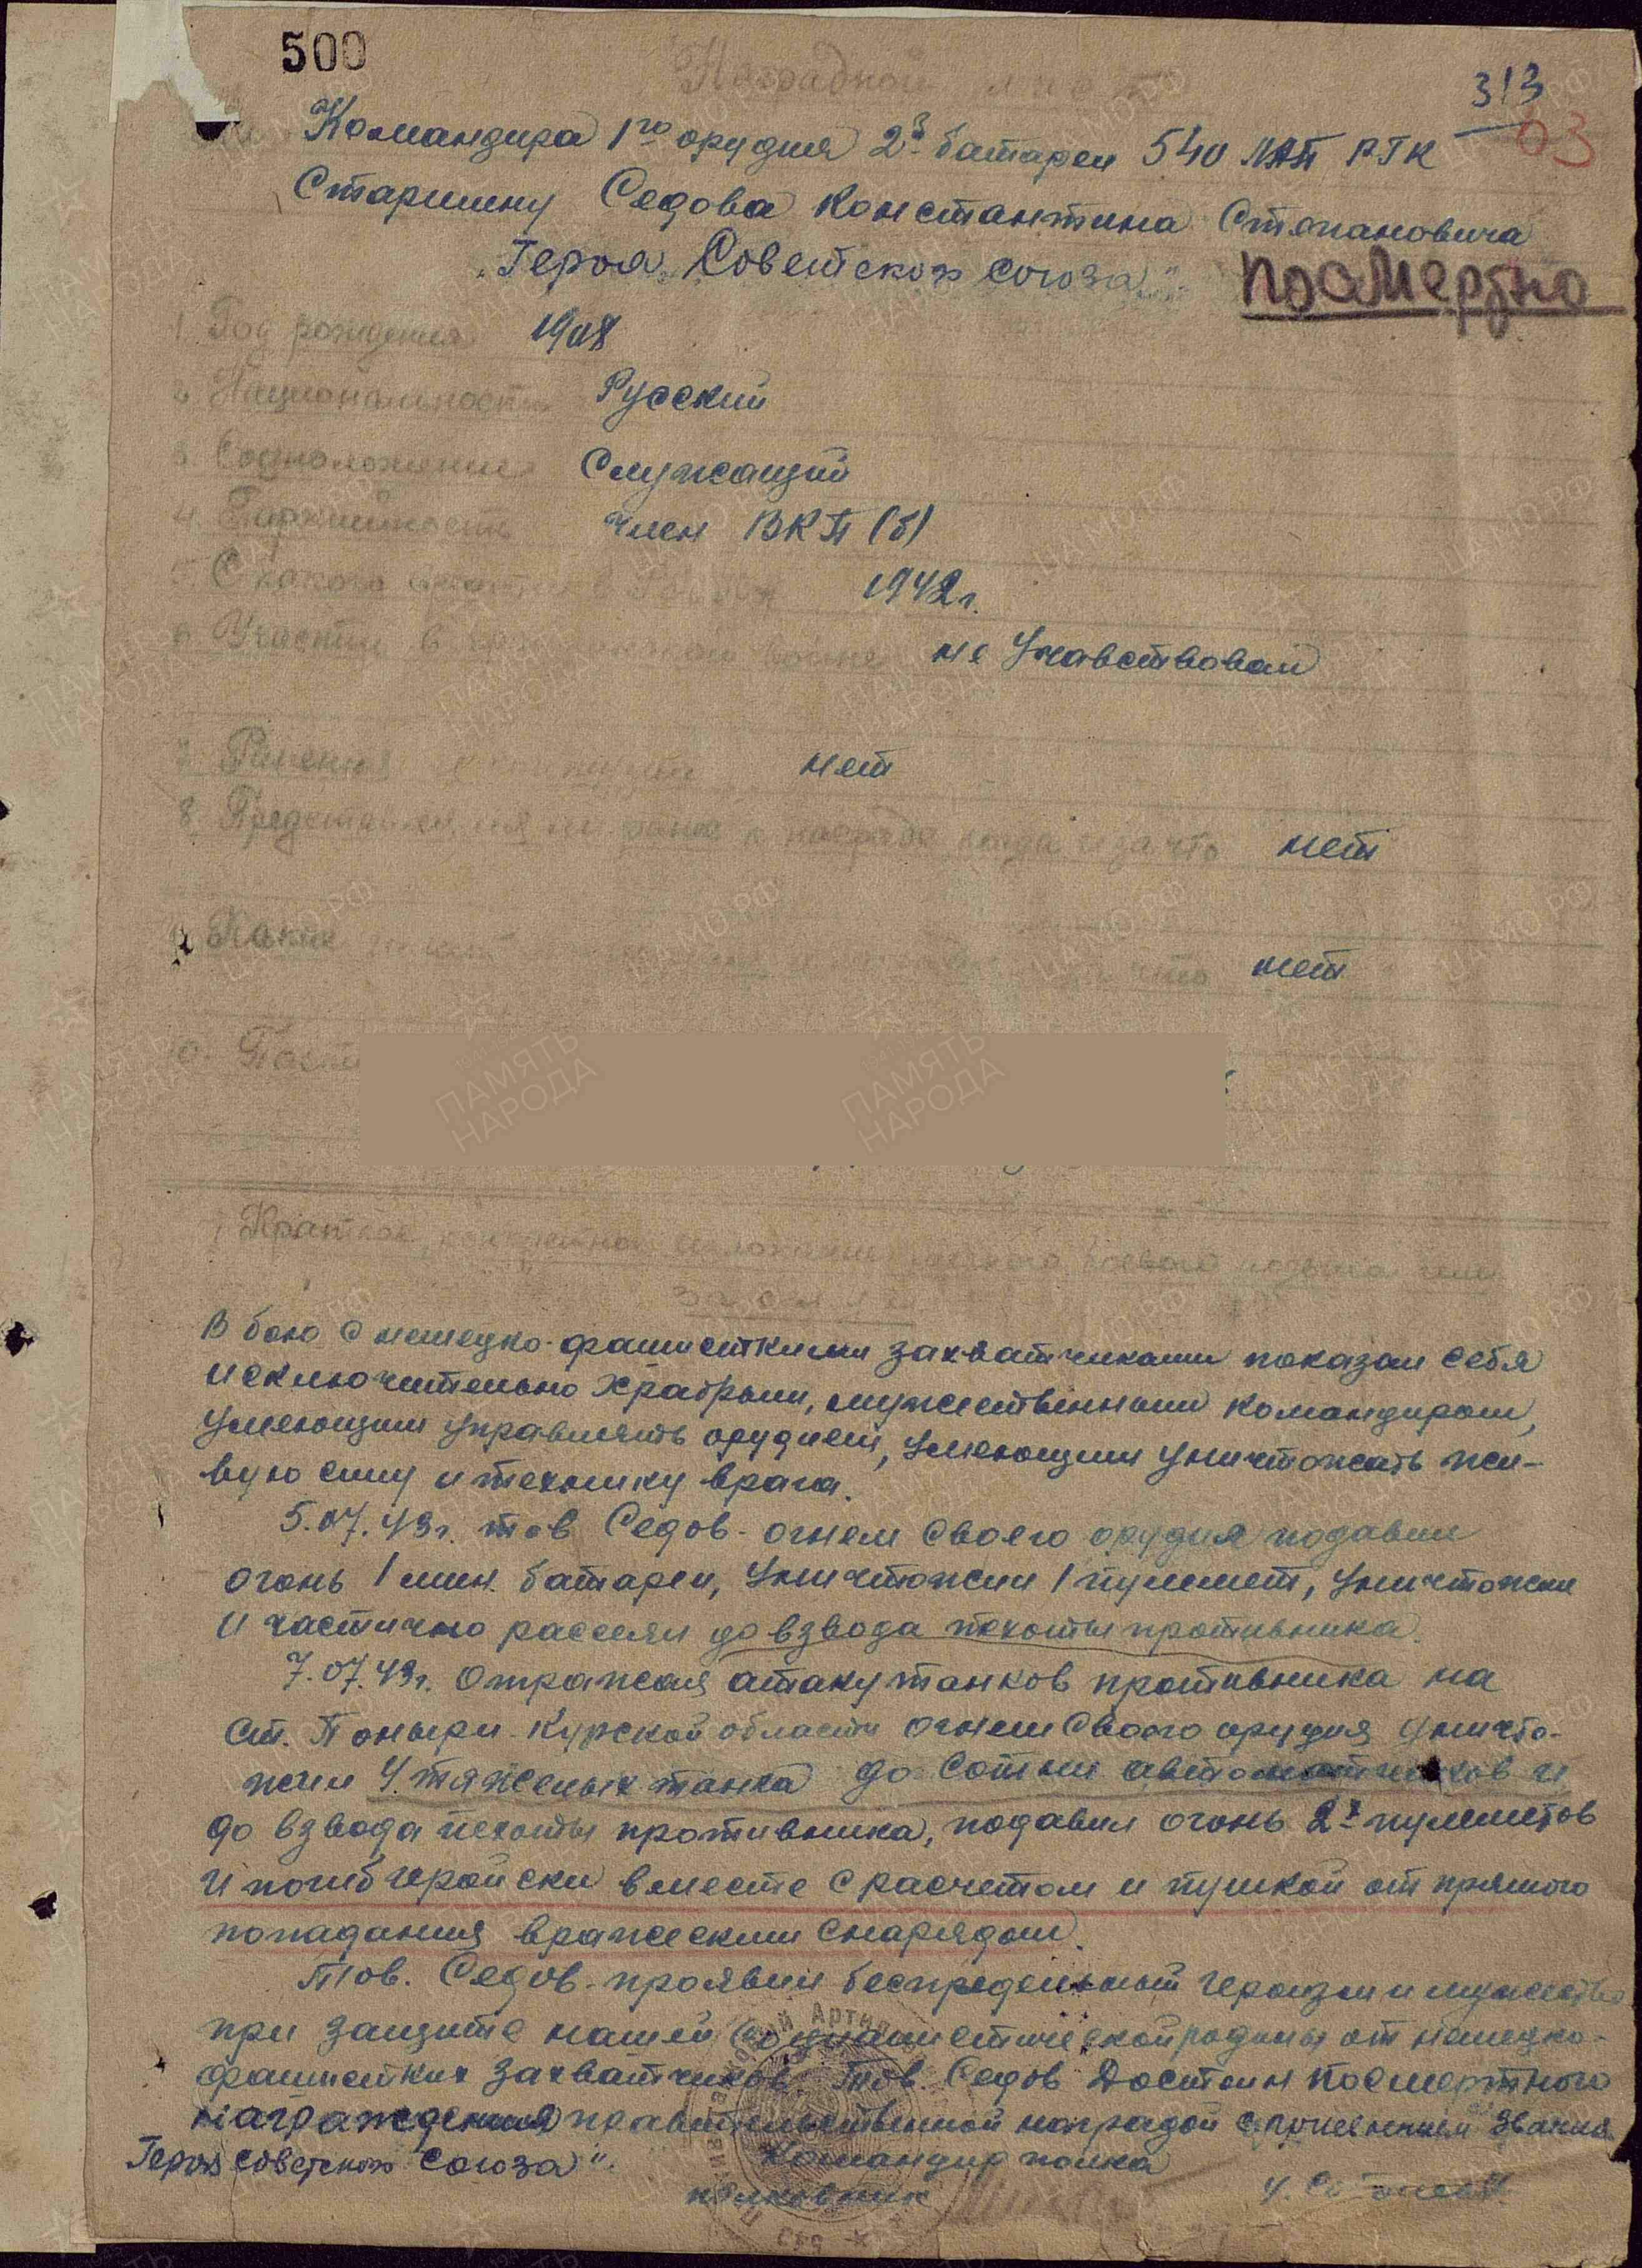 500
Наградной лист
313
63
Командира 1го орудия 2й батареи 540 ЛАП РГК
Старшину Седова Константина Степановича
"Героя Советского союза" посмертно
1. Год рождения 1908
2. Национальность Русский
3. Соцположение Служащий
4. Партийность член ВКП(б)
5. С какого времени в 1942г.
6. Участие в гражданской войне не Учавствовал
7. Ранения и контузии нет
8. Представлялся ли ранее к награде когда и за что нет
9. Какие имеет что нет
10. Пост
Краткое, конкретное изложение личного боевого подвига или
заслуг
В бою с немецко-фашисткими захватчиками показал себя
исключительно храбрым, мужественным командиром,
умеющим управлять орудием, умеющим уничтожать жи-
вую силу и технику врага.
5.07.43г. тов Седов - огнем своего орудия подавил
огонь 1 мин. батареи, уничтожил 1 пулемет, уничтожил
и частично рассеял до взвода пехоты противника.
7.07.43г. Отражая атаку танков противника на
ст. Поныри - Курской области огнем своего орудия уничто-
жил 4 тяжелых танка до сотни автоматчиков и
до взвода пехоты противника, подавил огонь 2х пулеметов
и погиб геройски вместе с расчетом и пушкой от прямого
попадания вражеским снарядом.
Тов. Седов - проявил беспредельный героизм и мужество
при защите нашей социалистической родины от немецко-
фашистких захватчиков. Тов. Седов Достоин посмертного
награждения правительственной наградой с присвоением звания
Героя Советского Союза".
Командир полка
полковник
ПАМЯТЬ НАРОДА
ЦАМО.РФ